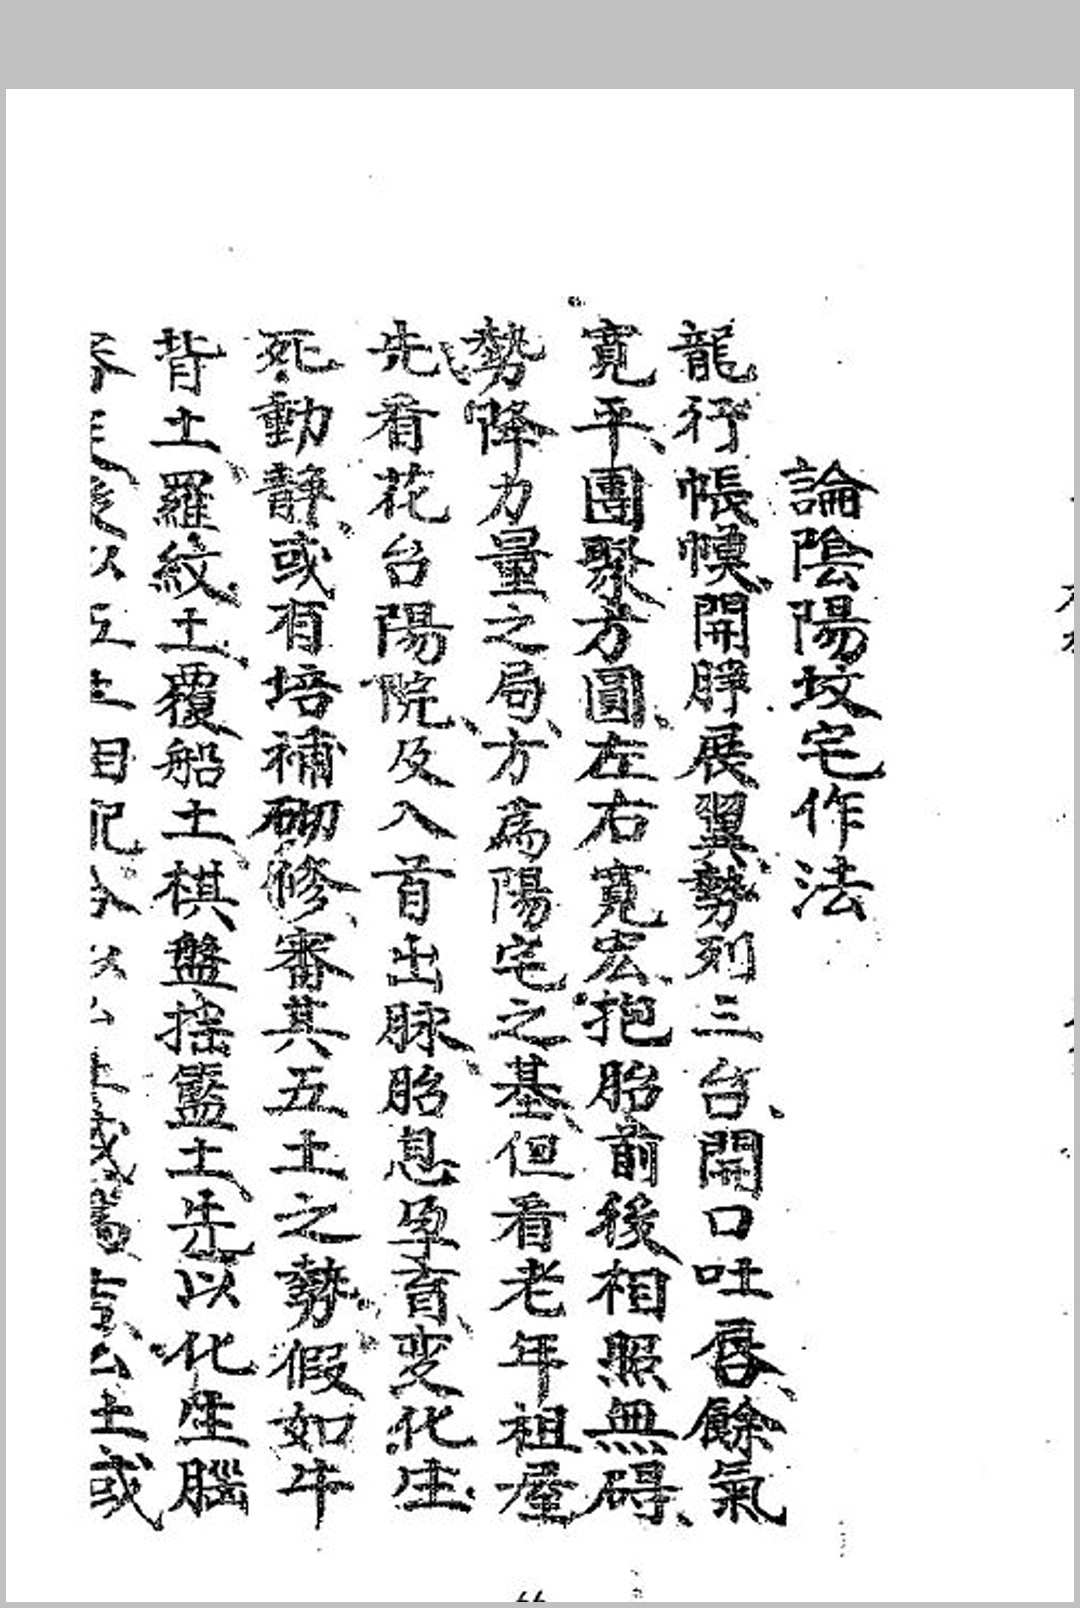 論陰陽坟宅作法
龍行帳幙、開脺展翼、勢列三台、開口吐唇、餘氣
寬平、團聚方圓、左右寬宏、抱胎前後相照無碍、
勢降力量之局、方為陽宅之基、但看老年祖屋
先看花台陽院、及入首出脉、胎息孕育、变化生、
死動静、或有培補砌修、審其五土之勢、假如牛
背土、羅紋土、覆船土、棋盤土、搖籃土、先以化生腦
以五土目配 土或為 土或
66